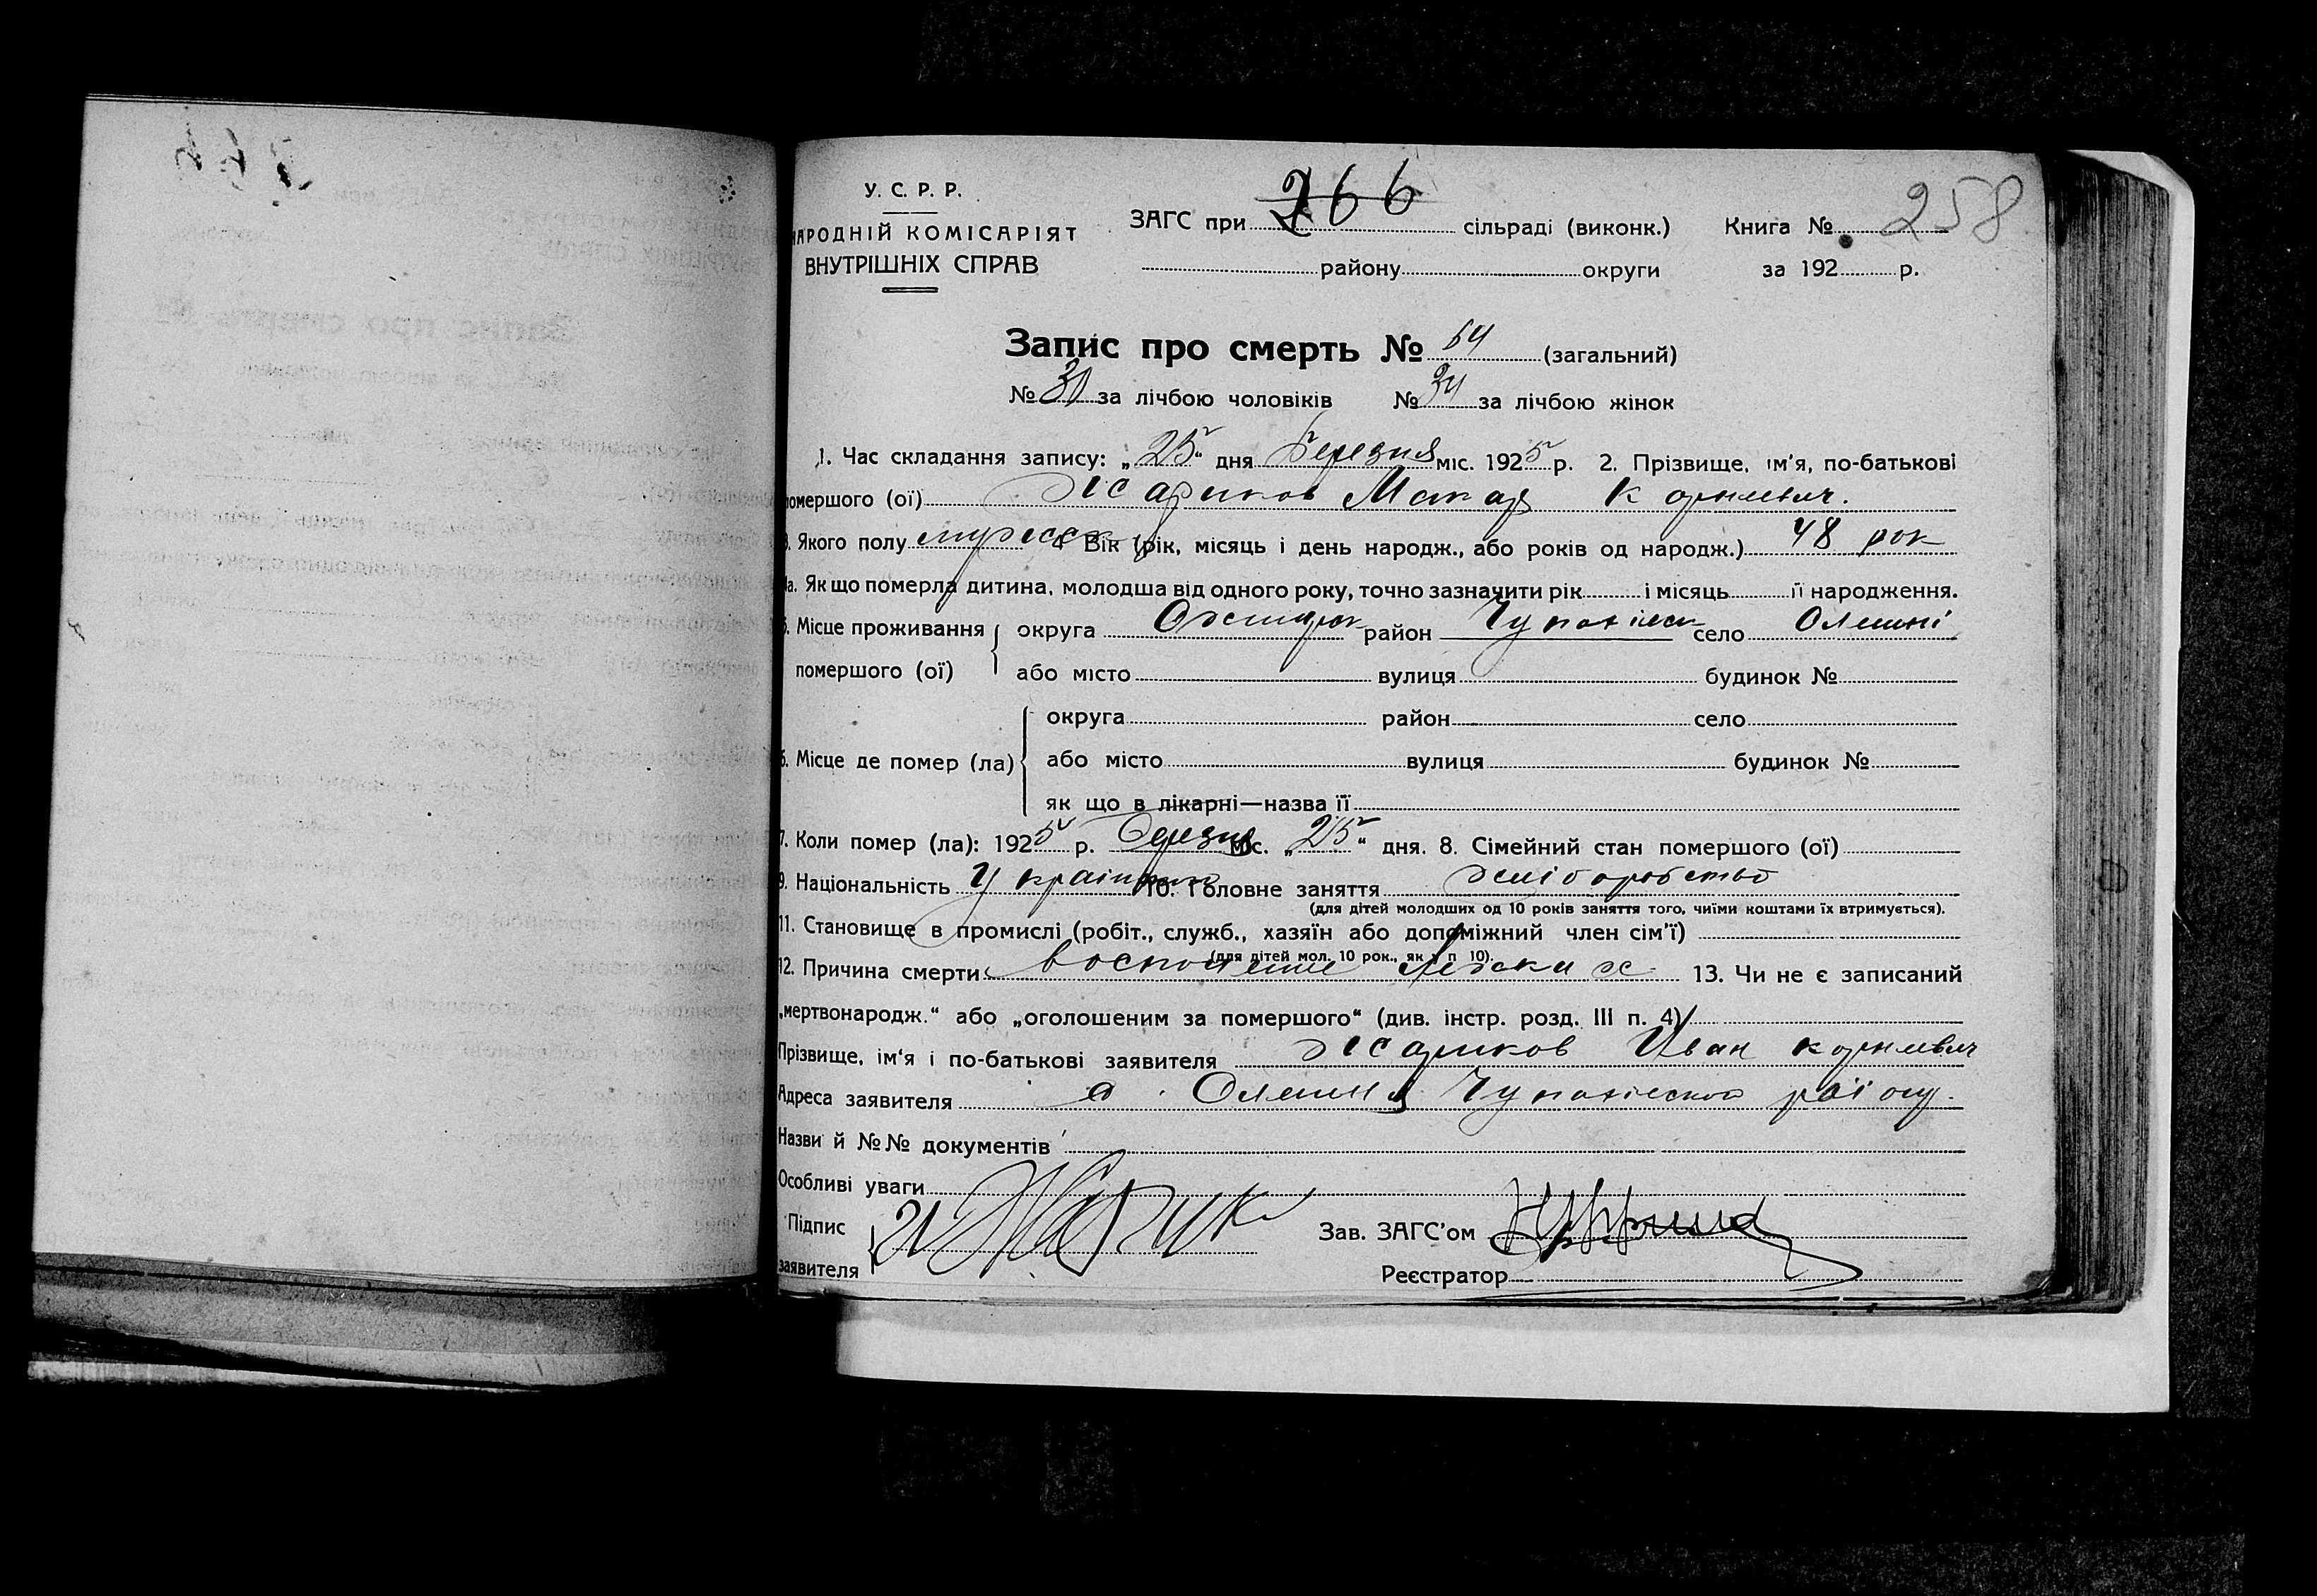 У. С. Р. Р.
НАРОДНІЙ КОМІСАРІЯТ
ВНУТРІШНІХ СПРАВ
ЗАГС при 266 сільраді (виконк.)
району округи
Книга № 258
за 192 р.
Запис про смерть № 64 (загальний)
№ 30 за лічбою чоловіків № 34 за лічбою жінок
1. Час складання запису: „25“ дня Березня міс. 1925 р. 2. Прізвище, ім'я, по-батькові
помершого (ої) Жариков Макар Корнлвич.
3. Якого полу мужеск 4. Вік (рік, місяць і день народж., або років од народж.) 48 рок
4а. Як що померла дитина, молодша від одного року, точно зазначити рік і місяць її народження.
5. Місце проживання помершого (ої) округа район село
або місто вулиця будинок №
6. Місце де помер (ла) округа район село
або місто вулиця будинок №
як що в лікарні—назва її
7. Коли помер (ла): 1925 р. Березня міс. „25“ дня. 8. Сімейний стан помершого (ої)
9. Національність Українец 10. Головне заняття хліборобство
(для дітей молодших од 10 років заняття того, чиїми коштами їх втримується).
11. Становище в промислі (робіт., служб., хазяїн або допоміжний член сім'ї)
(для дітей мол. 10 рок., як у п 10).
12. Причина смерти восполение 13. Чи не є записаний
„мертвонародж.“ або „оголошеним за помершого“ (див. інстр. розд. III п. 4)
Прізвище, ім'я і по-батькові заявителя Жариков Иван
Адреса заявителя району.
Назви й №№ документів
Особливі уваги
Підпис заявителя И Жарик
Зав. ЗАГС'ом
Реєстратор